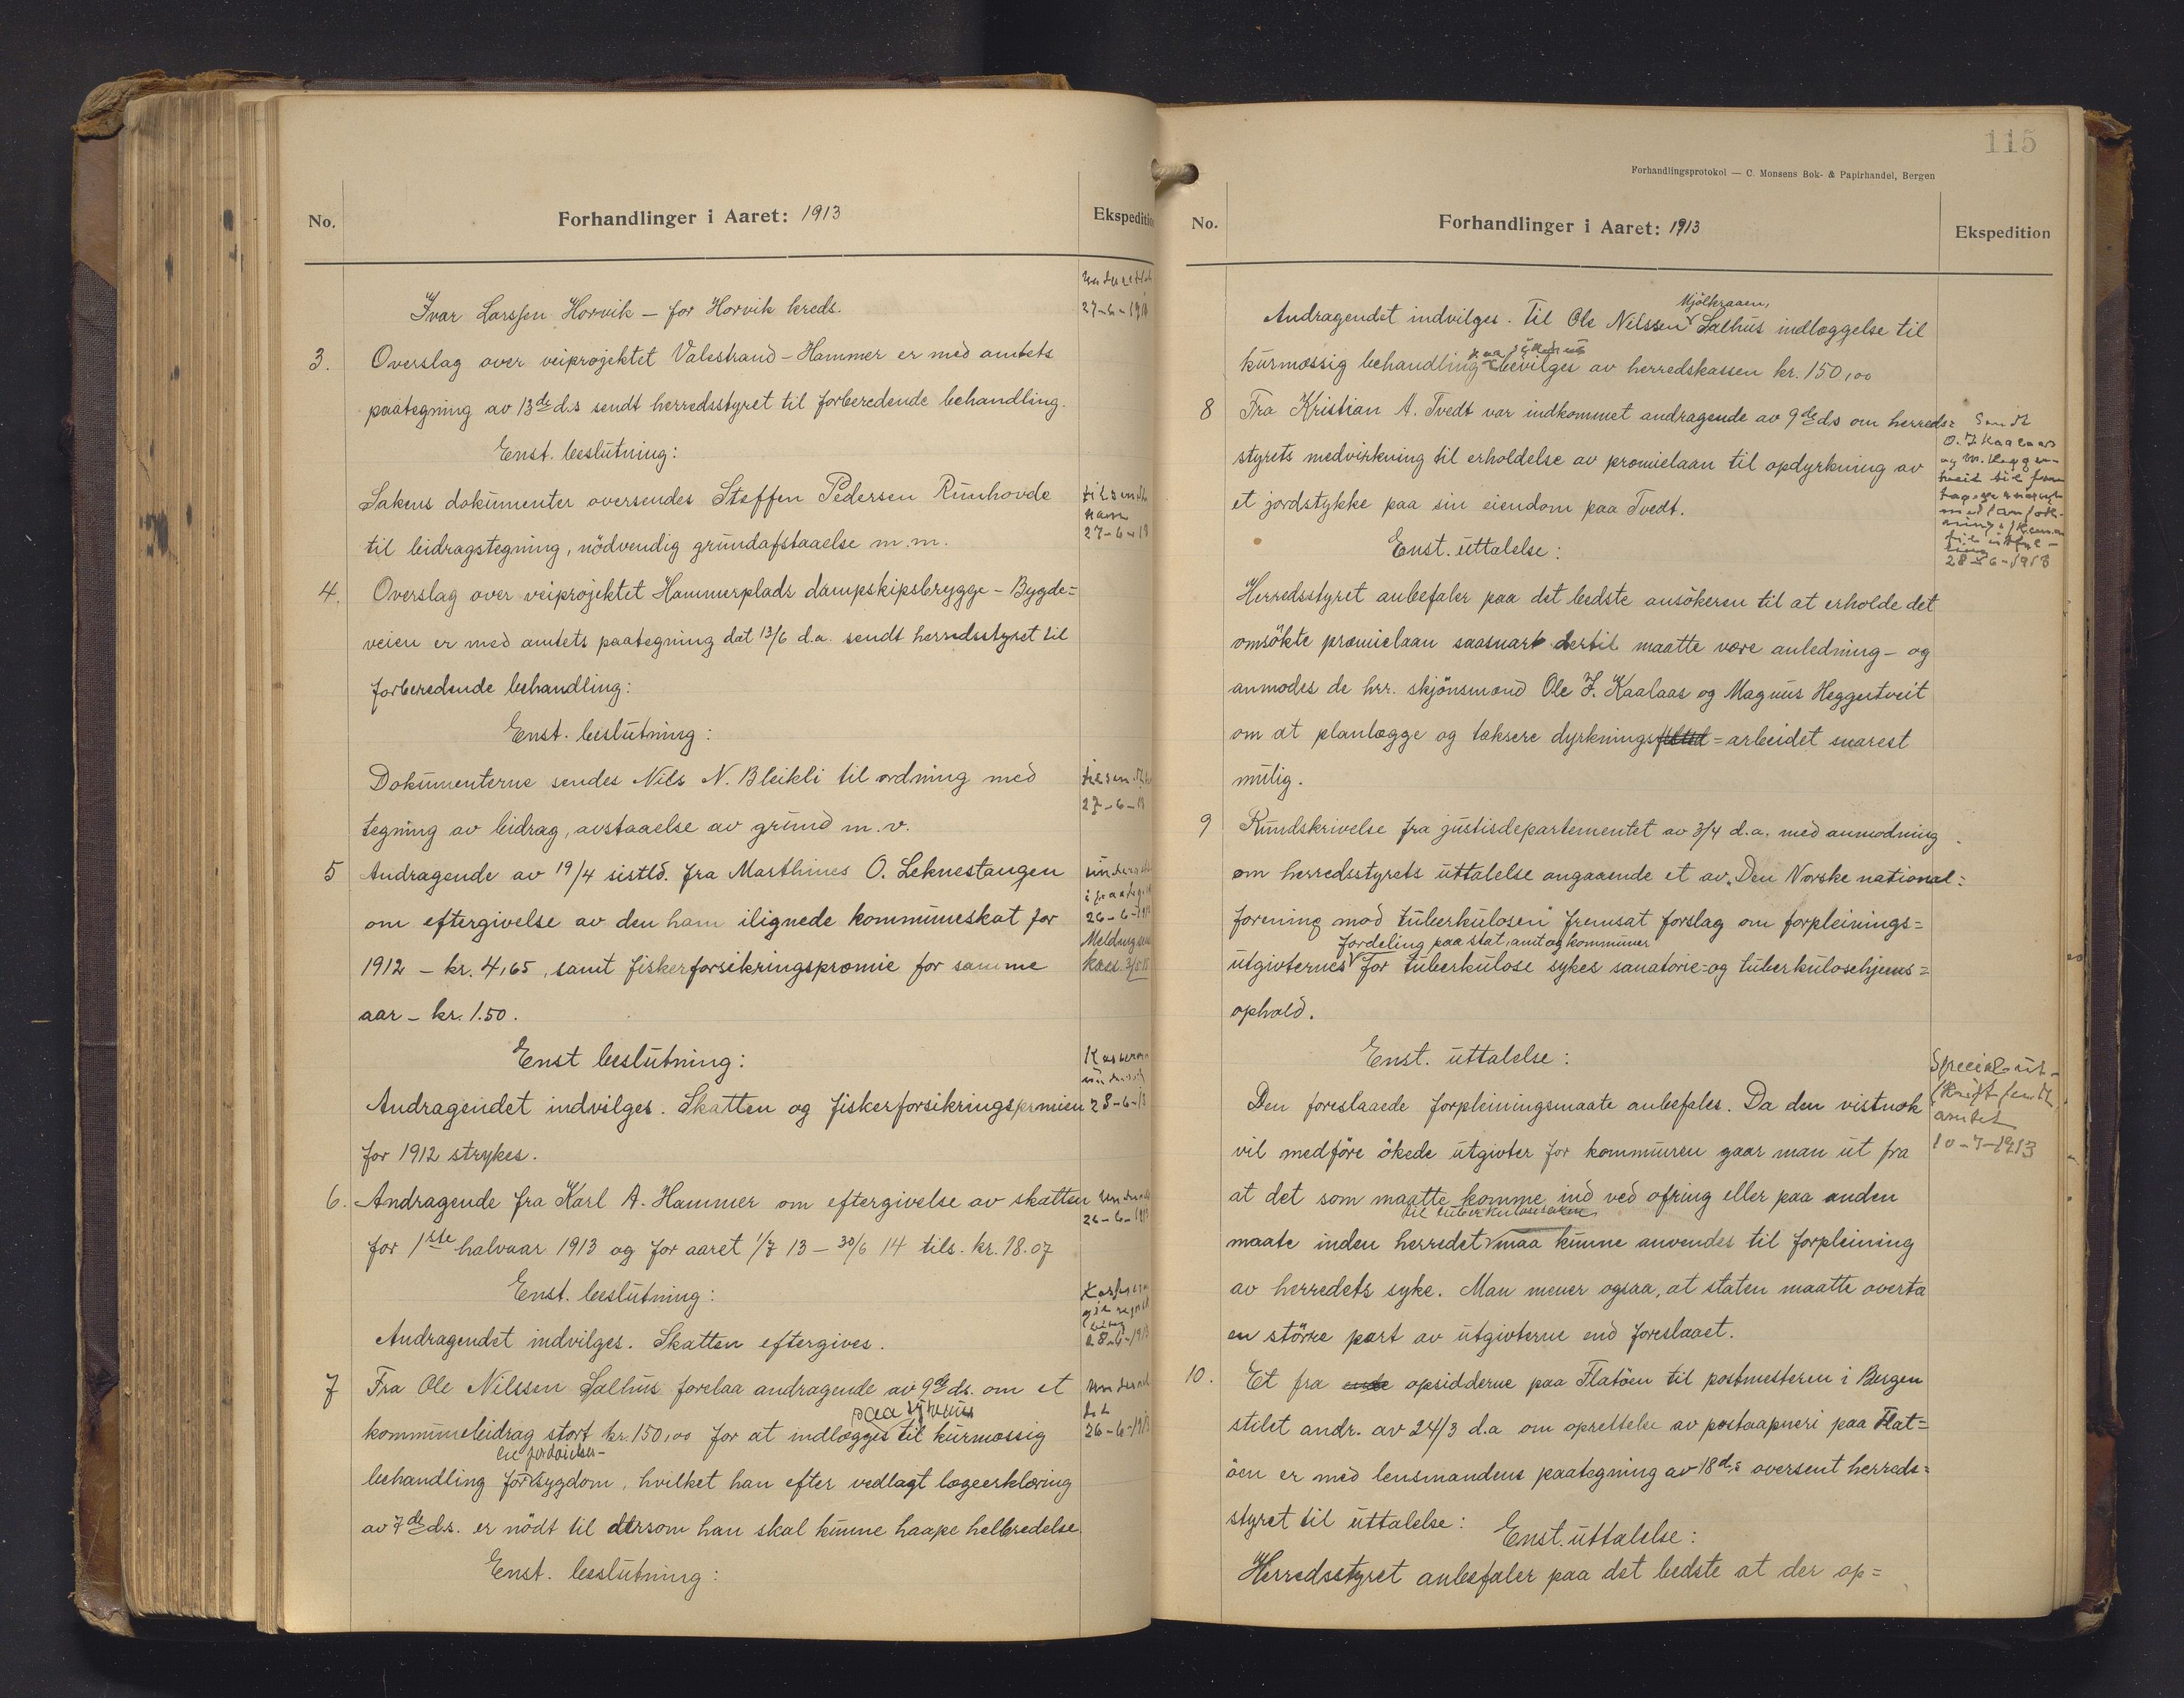 No.
Forhandlinger i Aaret: 1913
Ekspedition
Ivar Larssen Horvik – for Horvik kreds.
27-6-1913
3. Overslag over veiprojektet Valestrand–Hammer er med amtets
paategning av 13de ds sendt herredsstyret til forberedende behandling.
Enst. beslutning:
Sakens dokumenter oversendes Steffen Pedersen Runhovde
til bidragstegning, nödvendig grundafstaaelse m.m.
tilsendt ham
27-6-13
4. Overslag over veiprojektet Hammerplads dampskipsbrygge – Bygde=
veien er med amtets paategning dat 13/6 d.a. sendt herredsstyret til
forberedende behandling:
Enst. beslutning:
Dokumenterne sendes Nils N. Bleikli til ordning med
tegning av bidrag, avstaaelse av grund m.v.
27-6-13
5 Andragende av 19/4 sistld. fra Marthines O. Leknestangen
om eftergivelse av den ham ilignede kommuneskat for
1912 – kr. 4,65, samt fiskerforsikringspræmie for samme
aar – kr. 1.50.
26-6-1913
Enst beslutning:
Andragendet indvilges. Skatten og fiskerforsikringspræmien
for 1912 strykes.
28-6-13
6. Andragende fra Karl A. Hammer om eftergivelse av skatten
for 1ste halvaar 1913 og for aaret 1/7 13 – 30/6 14 tils. kr. 18.07
26-6-1913
Enst. beslutning:
Andragendet indvilges. Skatten eftergives.
28-6-1913
7 Fra Ole Nilssen Salhus forelaa andragende av 9de ds. om et
paa sykehus
kommunebidrag stort kr. 150,00 for at indlægges til kurmæssig
en fordöielses-
behandling for sygdom, hvilket han efter vedlagt lægeerklæring
av 7de ds. er nödt til dersom han skal kunne haape helbredelse.
26-6-1913
Enst. beslutning:
115
Forhandlingsprotokol — C. Monsens Bok- & Papirhandel, Bergen
No.
Forhandlinger i Aaret: 1913
Ekspedition
Mjölkraaen,
Andragendet indvilges. Til Ole Nilssen Salhus indlæggelse til
paa sykehus
kurmæssig behandling bevilges av herredskassen kr. 150,00
8 Fra Kristian A. Tvedt var indkommet andragende av 9de ds om herreds=
styrets medvirkning til erholdelse av præmielaan til opdyrkning av
et jordstykke paa sin eiendom paa Tvedt.
Sendt
O. J. Kaalaas
28-6-1913
Enst. uttalelse:
Herredsstyret anbefaler paa det bedste ansökeren til at erholde det
omsökte præmielaan saasnart dertil maatte være anledning – og
anmodes de hrr. skjönsmænd Ole J. Kaalaas og Magnus Heggertveit
om at planlægge og taksere dyrknings=arbeidet snarest
mulig.
9 Rundskrivelse fra justisdepartementet av 3/4 d.a. med anmodning
om herredsstyrets uttalelse angaaende et av „Den Norske national=
forening mod tuberkulosen" fremsat forslag om forpleinings=
fordeling paa stat, amt og kommuner
utgivternes for tuberkulose sykes sanatorie- og tuberkulosehjems=
ophold.
Enst. uttalelse:
Den foreslaaede forpleiningsmaate anbefales. Da den vistnok
vil medföre ökede utgivter for kommunen gaar man ut fra
at det som maatte komme ind ved ofring eller paa anden
til tuberkulosesaken
maate inden herredet maa kunne anvendes til forpleining
av herredets syke. Man mener ogsaa, at staten maatte overta
en större part av utgivterne end foreslaaet.
Specialut-
skrift sendt
amtet
10-7-1913
10. Et fra opsidderne paa Flatöen til postmesteren i Bergen
stilet andr. av 24/3 d.a om oprettelse av postaapneri paa Flat=
öen er med lensmandens paategning av 18 ds oversent herreds=
styret til uttalelse: Enst. uttalelse:
Herredsstyret anbefaler paa det bedste at der op=